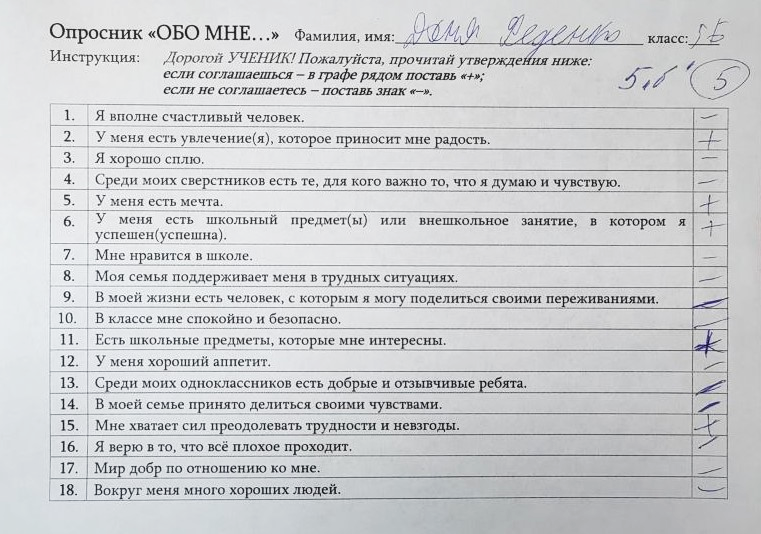 Опросник «ОБО МНЕ...» Фамилия, имя: Даня Деденко класс: 5Б
Инструкция: Дорогой УЧЕНИК! Пожалуйста, прочитай утверждения ниже:
если соглашаешься – в графе рядом поставь «+»;
если не соглашаетесь – поставь знак «–».
5
1. Я вполне счастливый человек. –
2. У меня есть увлечение(я), которое приносит мне радость. +
3. Я хорошо сплю. –
4. Среди моих сверстников есть те, для кого важно то, что я думаю и чувствую. –
5. У меня есть мечта. +
6. У меня есть школьный предмет(ы) или внешкольное занятие, в котором я
успешен(успешна). +
7. Мне нравится в школе. –
8. Моя семья поддерживает меня в трудных ситуациях. –
9. В моей жизни есть человек, с которым я могу поделиться своими переживаниями. –
10. В классе мне спокойно и безопасно. –
11. Есть школьные предметы, которые мне интересны. +
12. У меня хороший аппетит. –
13. Среди моих одноклассников есть добрые и отзывчивые ребята. –
14. В моей семье принято делиться своими чувствами. –
15. Мне хватает сил преодолевать трудности и невзгоды. +
16. Я верю в то, что всё плохое проходит. –
17. Мир добр по отношению ко мне. –
18. Вокруг меня много хороших людей. –